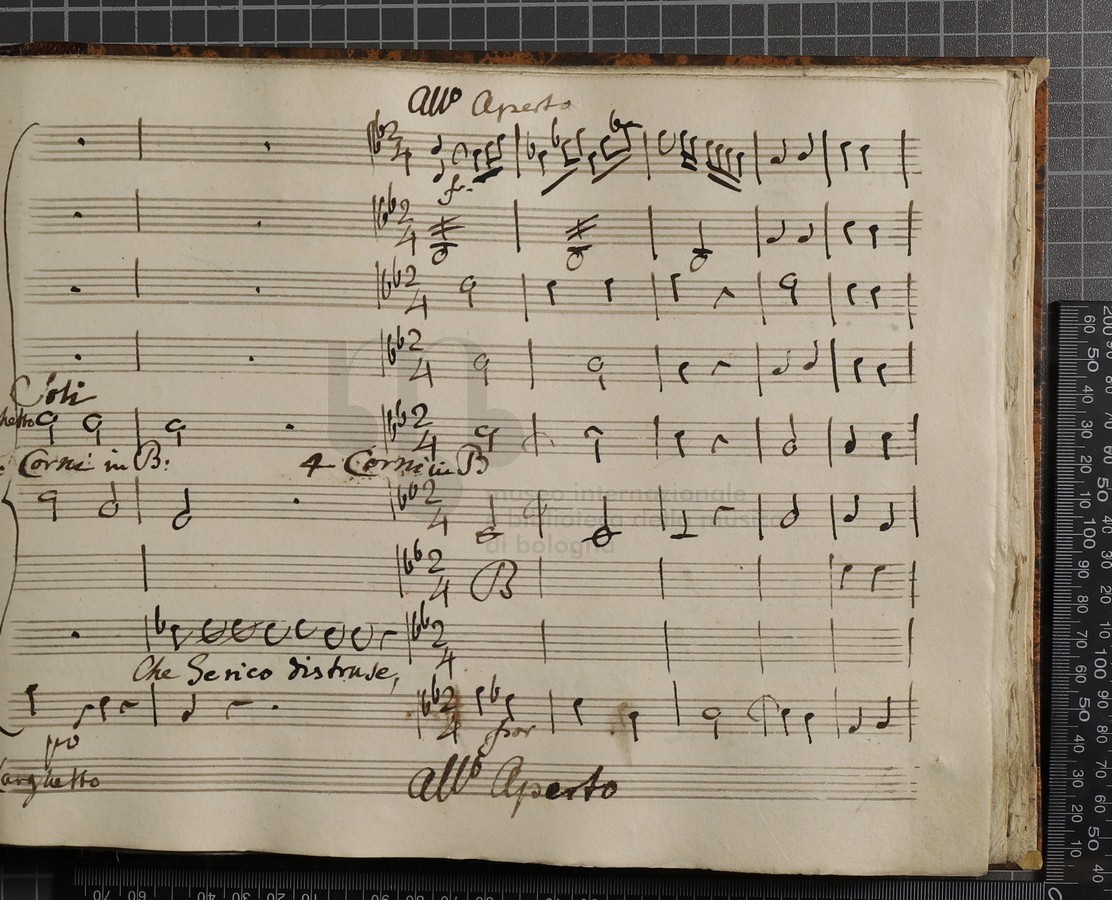 All⁰ Aperto
for
Soli
Corni in B:
4 Corni in B
B
Che Serico distruse,
for
p⁰
Larghetto
All⁰ Aperto
museo internazionale
e biblioteca della musica
di bologna